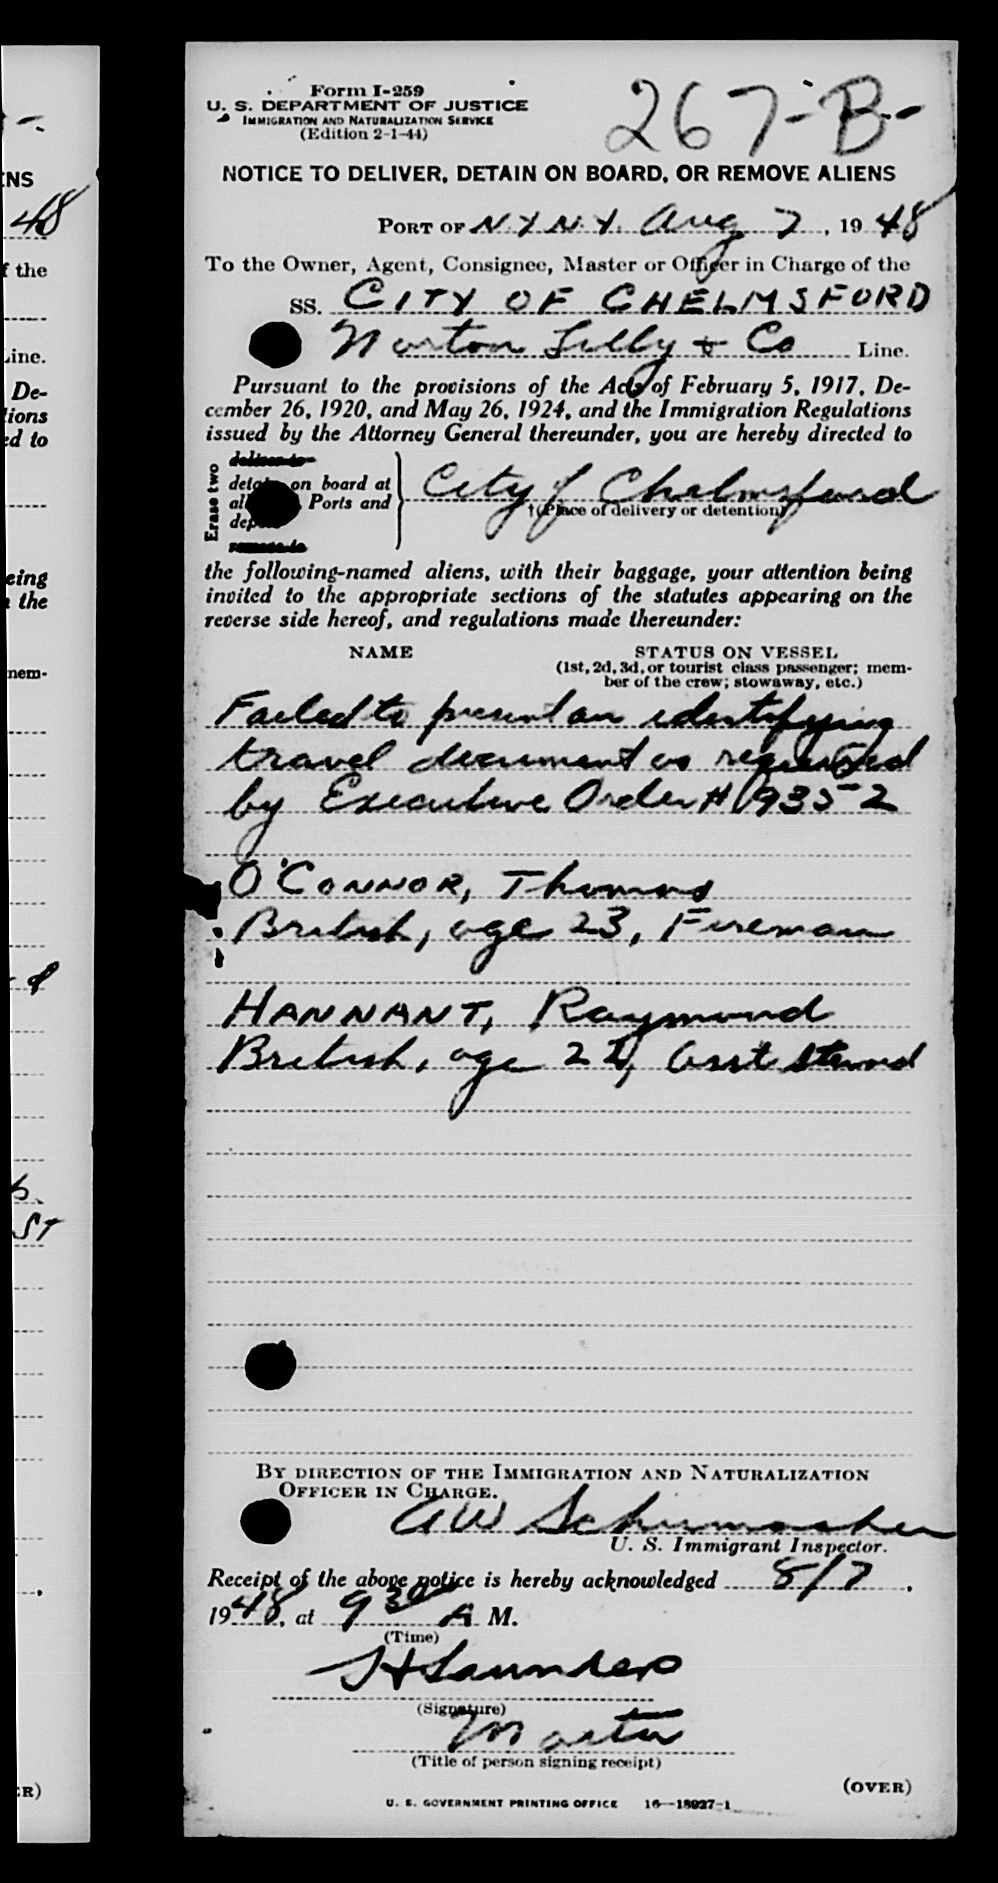 Form I-259
U. S. DEPARTMENT OF JUSTICE
IMMIGRATION AND NATURALIZATION SERVICE
(Edition 2-1-44)
267-B-
NOTICE TO DELIVER, DETAIN ON BOARD, OR REMOVE ALIENS
PORT OF N.Y. N.Y. Aug 7, 1948
To the Owner, Agent, Consignee, Master or Officer in Charge of the
SS. CITY OF CHELMSFORD
Norton Lilly & Co Line.
Pursuant to the provisions of the Acts of February 5, 1917, De-
cember 26, 1920, and May 26, 1924, and the Immigration Regulations
issued by the Attorney General thereunder, you are hereby directed to
Erase two
deliver to
detain on board at
all Ports and
deport
remove to
City of Chelmsford
†(Place of delivery or detention)
the following-named aliens, with their baggage, your attention being
invited to the appropriate sections of the statutes appearing on the
reverse side hereof, and regulations made thereunder:
NAME STATUS ON VESSEL
(1st, 2d, 3d, or tourist class passenger; mem-
ber of the crew; stowaway, etc.)
Failed to present an identifying
travel document as required
by Executive Order # 9352
O'CONNOR, Thomas
British, age 23, Fireman
HANNANT, Raymond
British, age 22, Asst Steward
BY DIRECTION OF THE IMMIGRATION AND NATURALIZATION
OFFICER IN CHARGE.
AW Schumacher
U. S. Immigrant Inspector.
Receipt of the above notice is hereby acknowledged 8/7,
1948, at 9 30 A M.
(Time)
SH Saunders
(Signature)
Master
(Title of person signing receipt)
(OVER)
U. S. GOVERNMENT PRINTING OFFICE 16—18927-1